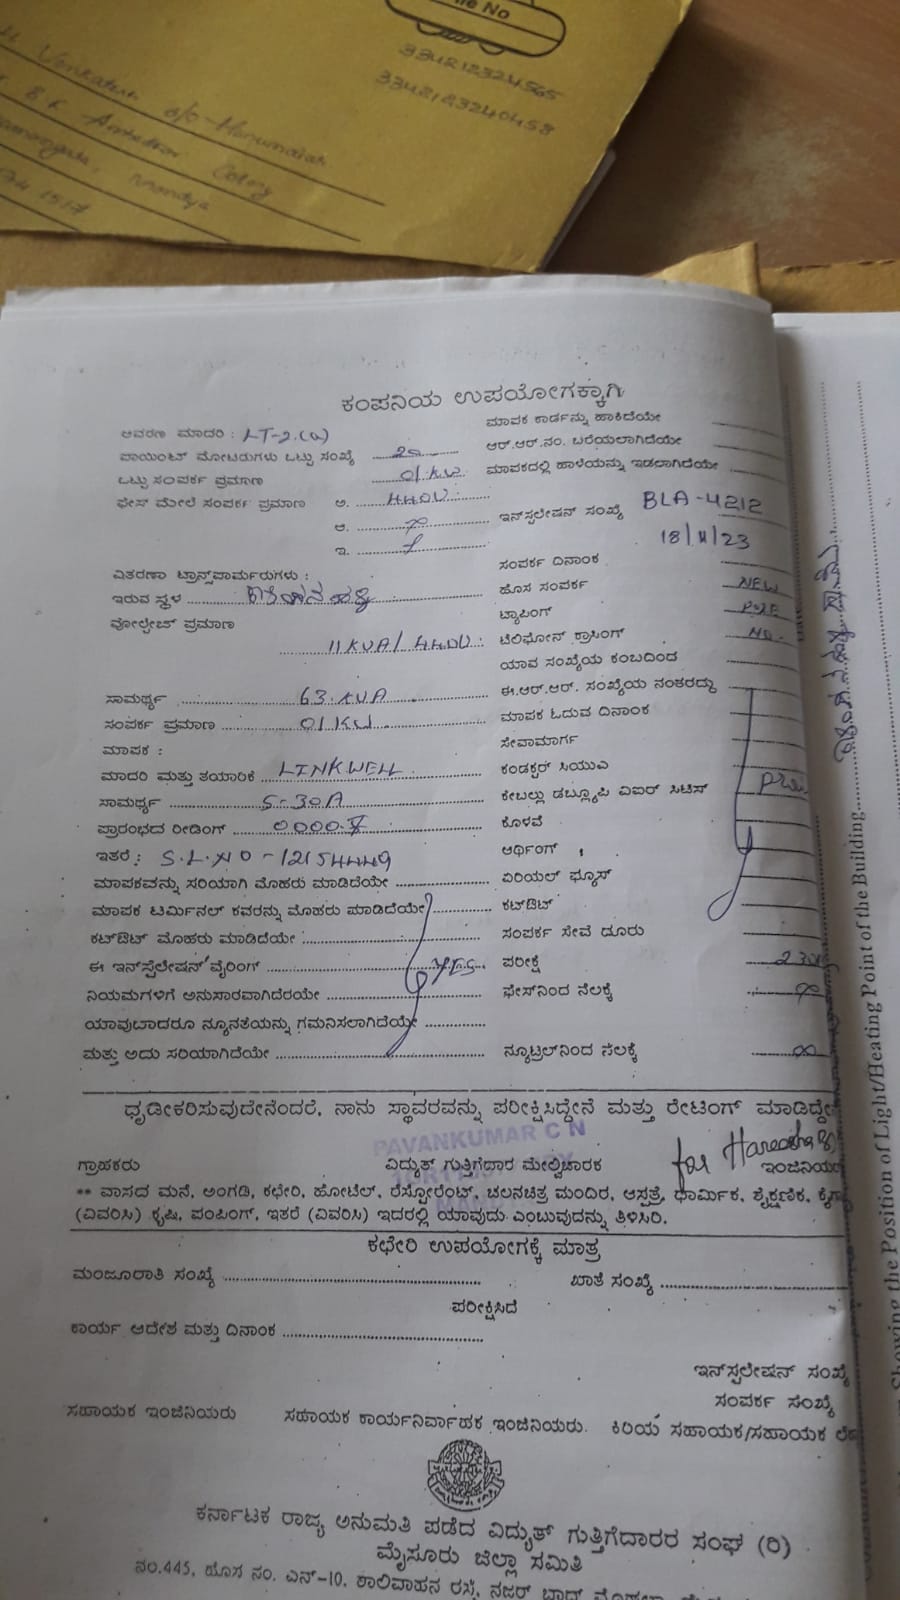 File No
334212324565
3342123240458
Venkatesh S/o-Hanumaiah
Ambedkar Colony
Mandya
ಕಂಪನಿಯ ಉಪಯೋಗಕ್ಕಾಗಿ
ಆವರಣ ಮಾದರಿ : LT-2.(a)
ಮಾಪಕ ಕಾರ್ಡನ್ನು ಹಾಕಿದೆಯೇ
ಪಾಯಿಂಟ್ ಮೋಟರುಗಳು ಒಟ್ಟು ಸಂಖ್ಯೆ
ಆರ್.ಆರ್.ನಂ. ಬರೆಯಲಾಗಿದೆಯೇ
ಒಟ್ಟು ಸಂಪರ್ಕ ಪ್ರಮಾಣ 01KW
ಮಾಪಕದಲ್ಲಿ ಹಾಳೆಯನ್ನು ಇಡಲಾಗಿದೆಯೇ
ಫೇಸ್ ಮೇಲೆ ಸಂಪರ್ಕ ಪ್ರಮಾಣ ಅ. 440V
ಆ.
ಇನ್‌ಸ್ಟಲೇಷನ್ ಸಂಖ್ಯೆ BLA-4212
ಇ.
18/11/23
ವಿತರಣಾ ಟ್ರಾನ್ಸ್‌ಫಾರ್ಮರುಗಳು :
ಸಂಪರ್ಕ ದಿನಾಂಕ
ಇರುವ ಸ್ಥಳ
ಹೊಸ ಸಂಪರ್ಕ NEW
ವೋಲ್ಟೇಜ್ ಪ್ರಮಾಣ
ಟ್ಯಾಪಿಂಗ್ POLE
11KVA/440V:
ಟೆಲಿಫೋನ್ ಕ್ರಾಸಿಂಗ್ NO.
ಯಾವ ಸಂಖ್ಯೆಯ ಕಂಬದಿಂದ
ಸಾಮರ್ಥ್ಯ 63.KVA
ಈ.ಆರ್.ಆರ್. ಸಂಖ್ಯೆಯ ನಂತರದ್ದು
ಸಂಪರ್ಕ ಪ್ರಮಾಣ 01KW
ಮಾಪಕ ಓದುವ ದಿನಾಂಕ
ಮಾಪಕ :
ಸೇವಾಮಾರ್ಗ
ಮಾದರಿ ಮತ್ತು ತಯಾರಿಕೆ LINKWELL
ಕಂಡಕ್ಟರ್ ಸಿಯುವಿ
ಸಾಮರ್ಥ್ಯ 5-30A
ಕೇಬಲ್ಲು ಡಬ್ಲ್ಯೂಪಿ ಏಐರ್ ಸಿಟಿಸ್
ಪ್ರಾರಂಭದ ರೀಡಿಂಗ್
ಕೊಳವೆ
ಇತರೆ : S.L.NO-12154449
ಆರ್ಥಿಂಗ್
ಮಾಪಕವನ್ನು ಸರಿಯಾಗಿ ಮೊಹರು ಮಾಡಿದೆಯೇ
ಏರಿಯಲ್ ಫ್ಯೂಸ್
ಮಾಪಕ ಟರ್ಮಿನಲ್ ಕವರನ್ನು ಮೊಹರು ಮಾಡಿದೆಯೇ
ಕಟ್‌ಔಟ್
ಕಟ್‌ಔಟ್ ಮೊಹರು ಮಾಡಿದೆಯೇ
ಸಂಪರ್ಕ ಸೇವೆ ದೂರು
ಈ ಇನ್‌ಸ್ಟೆಲೇಷನ್ ವೈರಿಂಗ್ YES.
ಪರೀಕ್ಷೆ 230V
ನಿಯಮಗಳಿಗೆ ಅನುಸಾರವಾಗಿದೆರಯೇ
ಫೇಸ್‌ನಿಂದ ನೆಲಕ್ಕೆ
ಯಾವುಬಾದರೂ ನ್ಯೂನತೆಯನ್ನು ಗಮನಿಸಲಾಗಿದೆಯೇ
ಮತ್ತು ಅದು ಸರಿಯಾಗಿದೆಯೇ
ನ್ಯೂಟ್ರಲ್‌ನಿಂದ ನೆಲಕ್ಕೆ
ಧೃಡೀಕರಿಸುವುದೇನೆಂದರೆ, ನಾನು ಸ್ಥಾವರವನ್ನು ಪರೀಕ್ಷಿಸಿದ್ದೇನೆ ಮತ್ತು ರೇಟಿಂಗ್ ಮಾಡಿದ್ದೇನೆ
PAVANKUMAR C N
ಗ್ರಾಹಕರು
ವಿದ್ಯುತ್ ಗುತ್ತಿಗೆದಾರ ಮೇಲ್ವಿಚಾರಕ
for
ಇಂಜಿನಿಯರ
** ವಾಸದ ಮನೆ, ಅಂಗಡಿ, ಕಛೇರಿ, ಹೋಟೆಲ್, ರೆಸ್ಟೋರೆಂಟ್, ಚಲನಚಿತ್ರ ಮಂದಿರ, ಆಸ್ಪತ್ರೆ, ಧಾರ್ಮಿಕ, ಶೈಕ್ಷಣಿಕ,
(ವಿವರಿಸಿ) ಕೃಷಿ, ಪಂಪಿಂಗ್, ಇತರೆ (ವಿವರಿಸಿ) ಇದರಲ್ಲಿ ಯಾವುದು ಎಂಬುವುದನ್ನು ತಿಳಿಸಿರಿ.
ಕಛೇರಿ ಉಪಯೋಗಕ್ಕೆ ಮಾತ್ರ
ಮಂಜೂರಾತಿ ಸಂಖ್ಯೆ
ಖಾತೆ ಸಂಖ್ಯೆ
ಪರೀಕ್ಷಿಸಿದೆ
ಕಾರ್ಯ ಆದೇಶ ಮತ್ತು ದಿನಾಂಕ
ಇನ್‌ಸ್ಟಲೇಷನ್ ಸಂಖ್ಯೆ
ಸಂಪರ್ಕ ಸಂಖ್ಯೆ
ಸಹಾಯಕ ಇಂಜಿನಿಯರು
ಸಹಾಯಕ ಕಾರ್ಯನಿರ್ವಾಹಕ ಇಂಜಿನಿಯರು.
ಕಿರಿಯ ಸಹಾಯಕ/ಸಹಾಯಕ
ಕರ್ನಾಟಕ ರಾಜ್ಯ ಅನುಮತಿ ಪಡೆದ ವಿದ್ಯುತ್ ಗುತ್ತಿಗೆದಾರರ ಸಂಘ (ರಿ)
ಮೈಸೂರು ಜಿಲ್ಲಾ ಸಮಿತಿ
ನಂ.445, ಹೊಸ ನಂ. ಎನ್-10, ಶಾಲಿವಾಹನ ರಸ್ತೆ, ನಜರ್ ಬಾದ್
Showing the Position of Light/Heating Point of the Building